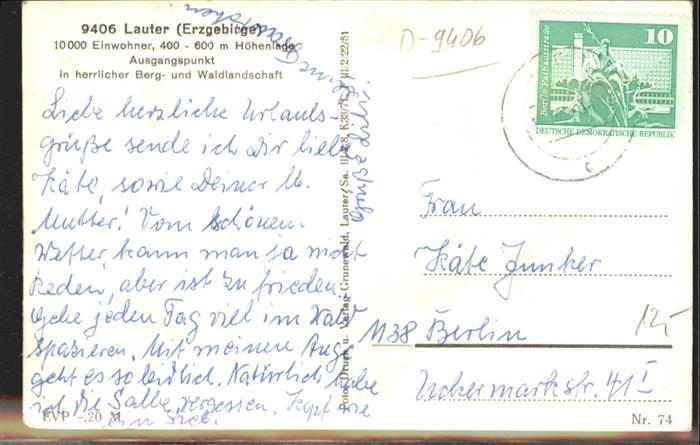 9406 Lauter (Erzgebirge)
10000 Einwohner, 400 - 600 m Höhenlage
Ausgangspunkt
in herrlicher Berg- und Waldlandschaft
Liebe herzliche Urlaubs-
grüße sende ich Dir liebe
Käte, sowie Deiner lb.
Mutter! Vom schönen
Wetter kann man ja nicht
reden, aber ist zufrieden.
Gehe jeden Tag viel im Wald
spazieren. Mit meinen Auge
geht es so leidlich. Natürlich habe
ich die Salbe vergessen. Kopf wie
ein Sieb.
Grüße Lilli
EVP -,20 M
Foto, Druck u. Verlag Grunewald, Lauter/Sa. III/2/22/51
D-9406
10
Berlin, Rathausstraße
DEUTSCHE DEMOKRATISCHE REPUBLIK
Frau
Käte Junker
1138 Berlin
Uckermarkstr. 41 I
12,-
Nr. 74